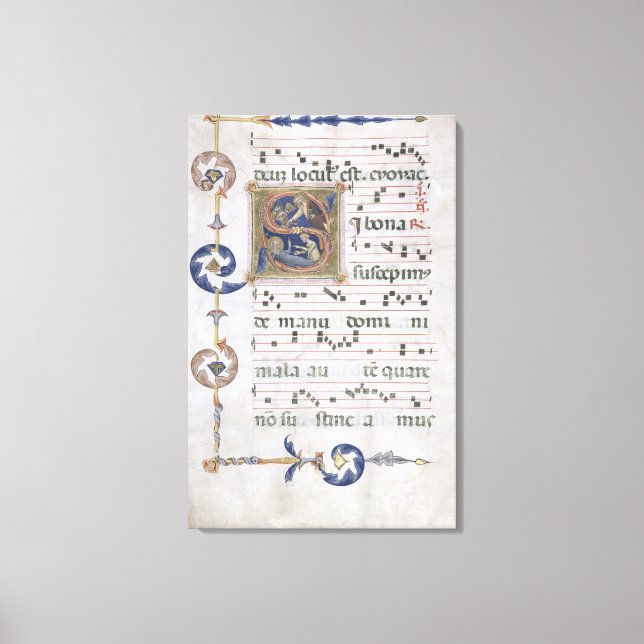 deus locut' est. evovae.
Si bona R
suscepim'
de manu domi ni
mala au tē quare
nō su stine a mus